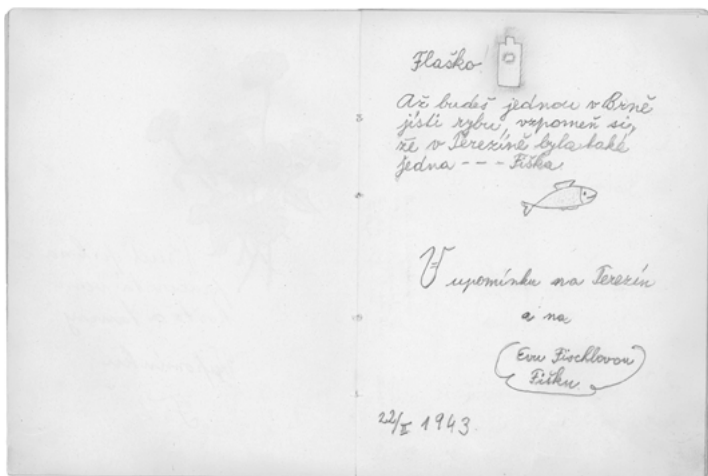 Flaško!
Až budeš jednou v Brně
jísti rybu, vzpomeň si,
že v Terezíně byla také
jedna - - - Fiška.
V upomínku na Terezín
a na
Evu Fischlovou
Fišku.
22/II 1943